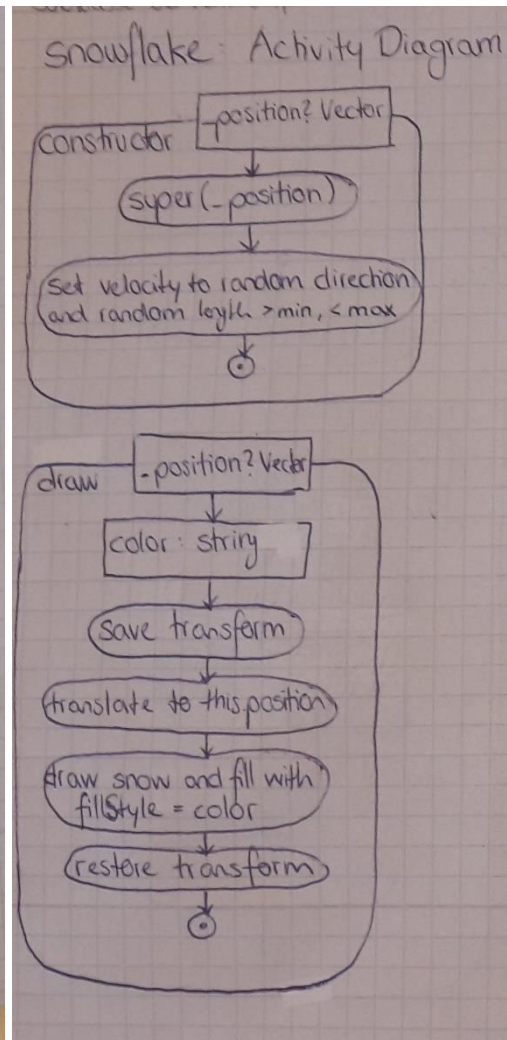 Snowflake: Activity Diagram
-position? Vector
constructor
super(-position)
set velocity to random direction
and random length >min, <max
-position? Vector
draw
color: string
save transform
translate to this.position
draw snow and fill with
fillStyle = color
restore transform